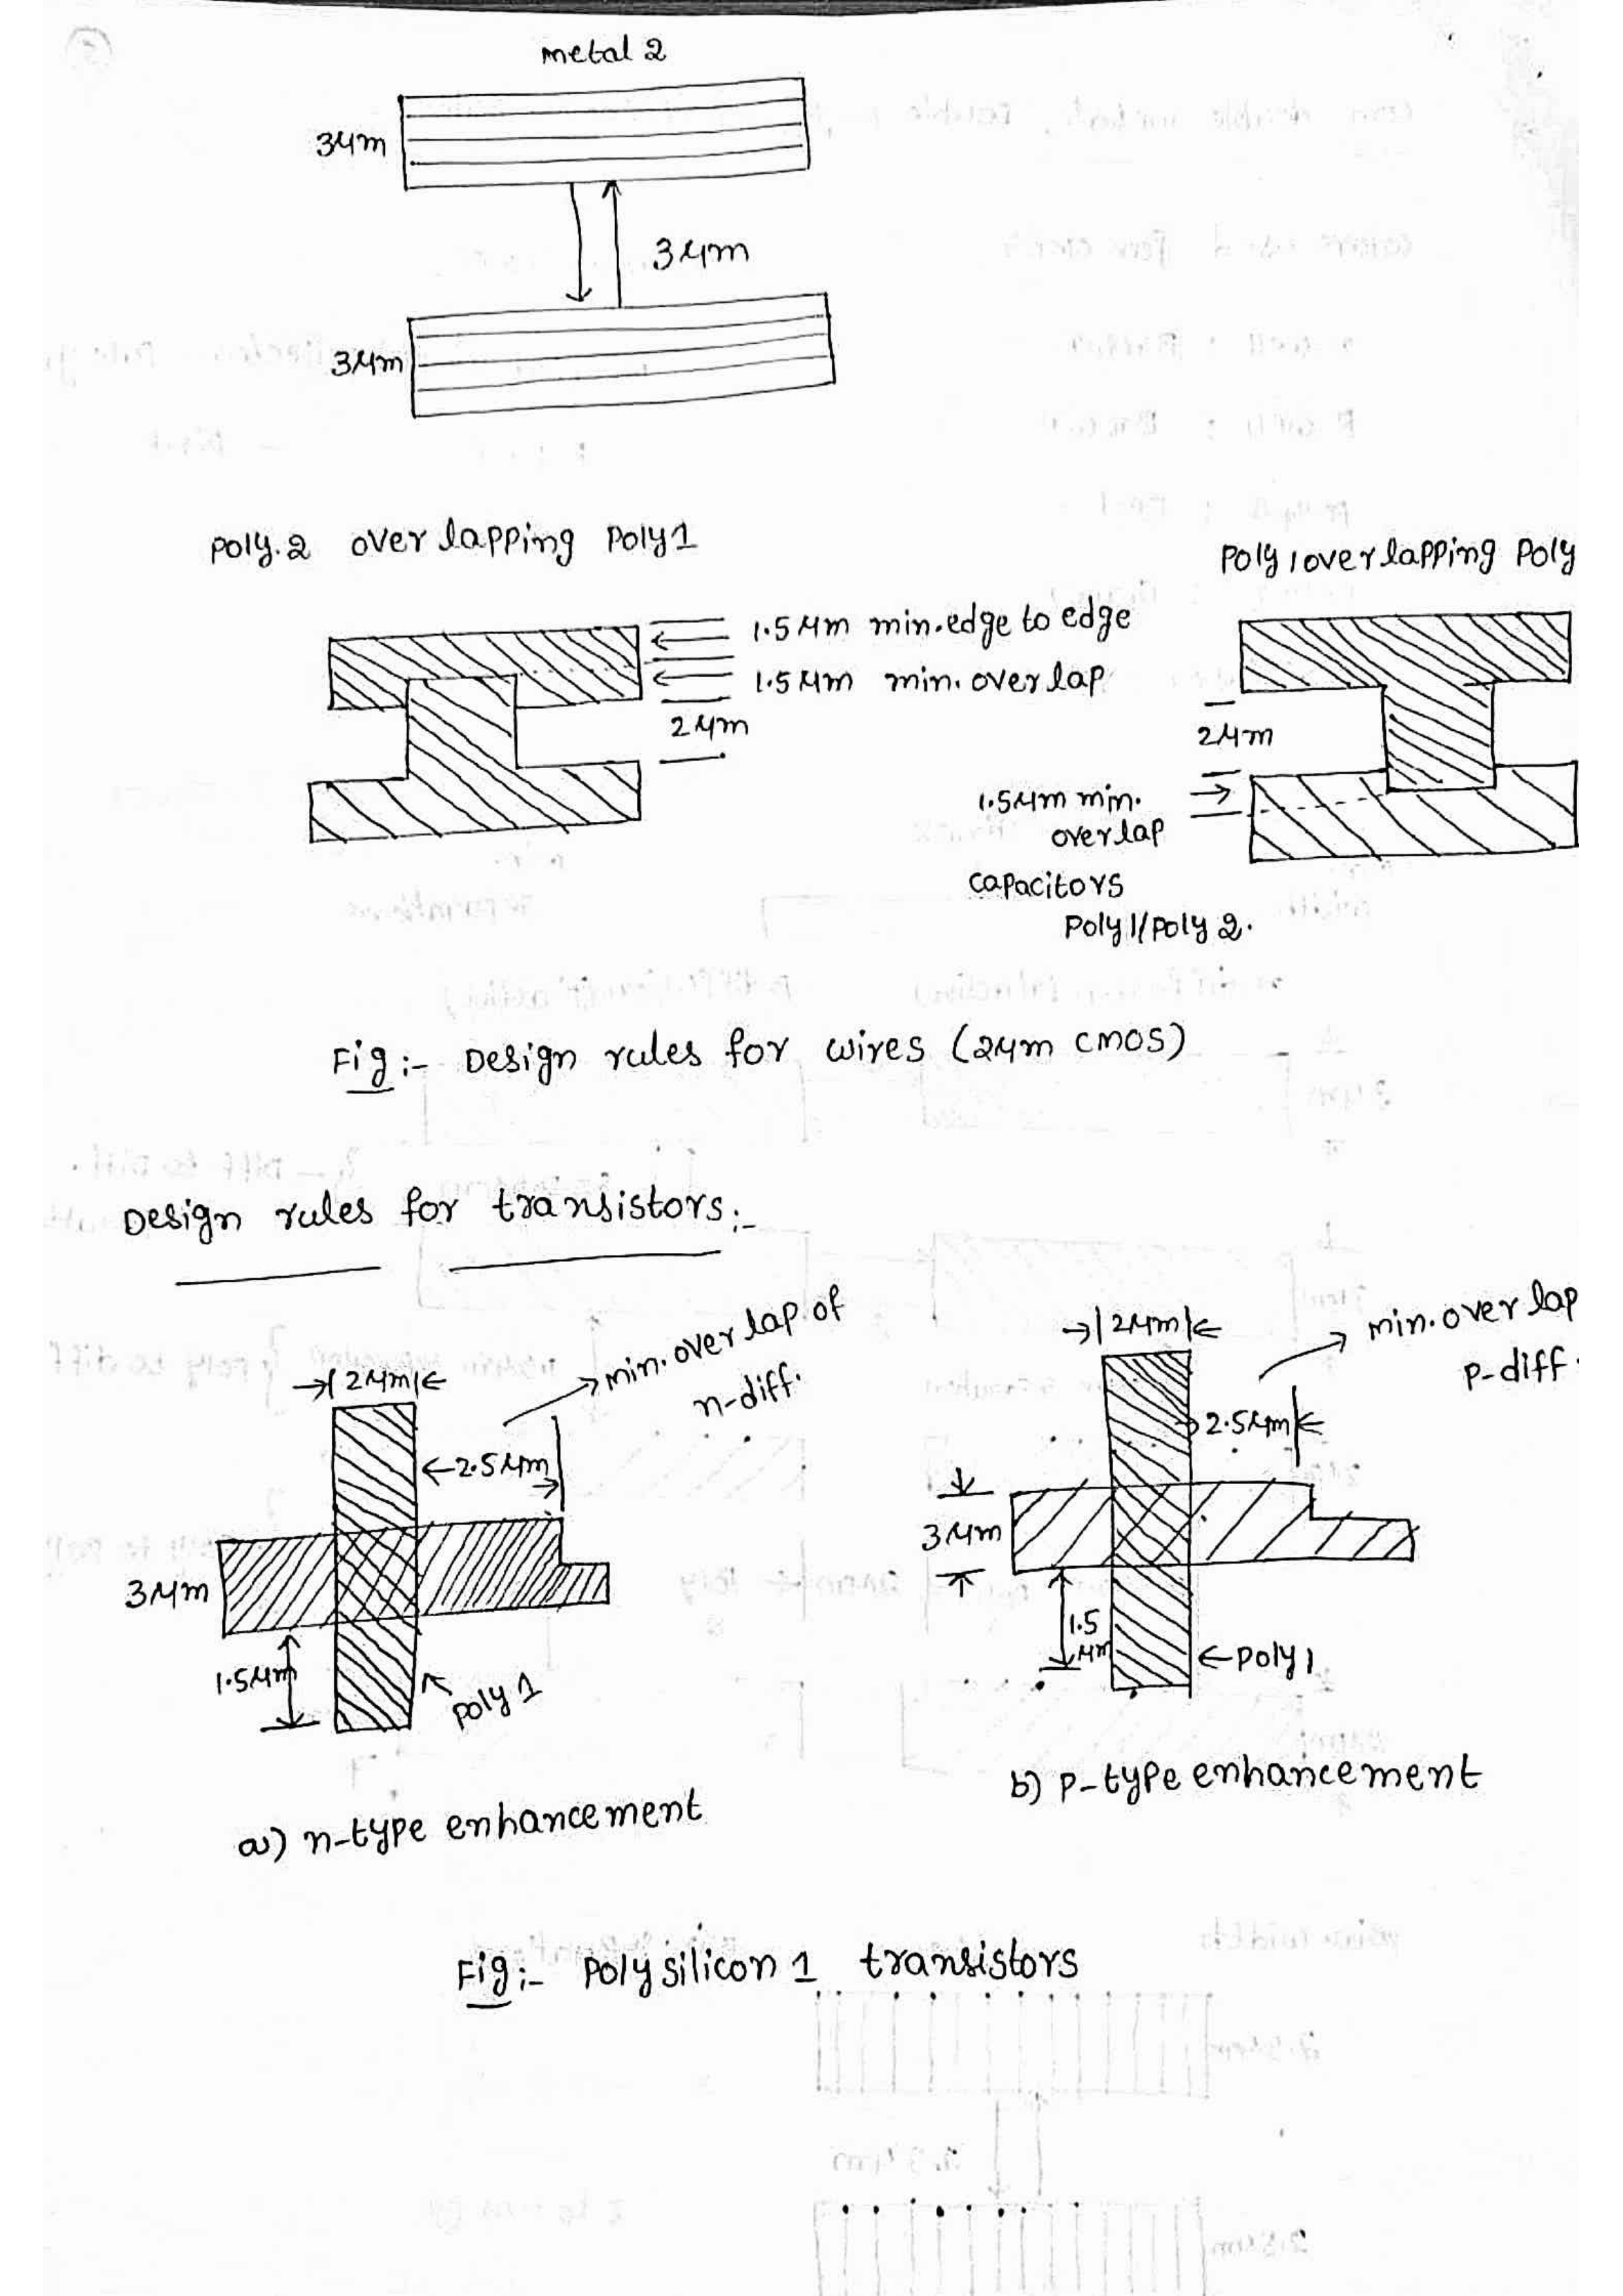 metal 2
3μm
3μm
3μm
poly.2 overlapping poly1
poly 1 overlapping poly
1.5μm min.edge to edge
1.5μm min.overlap
2μm
2μm
1.5μm min.
overlap
capacitors
poly1/poly 2.
Fig:- Design rules for wires (2μm cmos)
Design rules for transistors:-
min.overlap of
n-diff.
2μm
2.5μm
3μm
1.5μm
poly 1
a) n-type enhancement
min.overlap
p-diff.
2μm
2.5μm
3μm
1.5
μm
poly 1
b) p-type enhancement
Fig:- Polysilicon 1 transistors